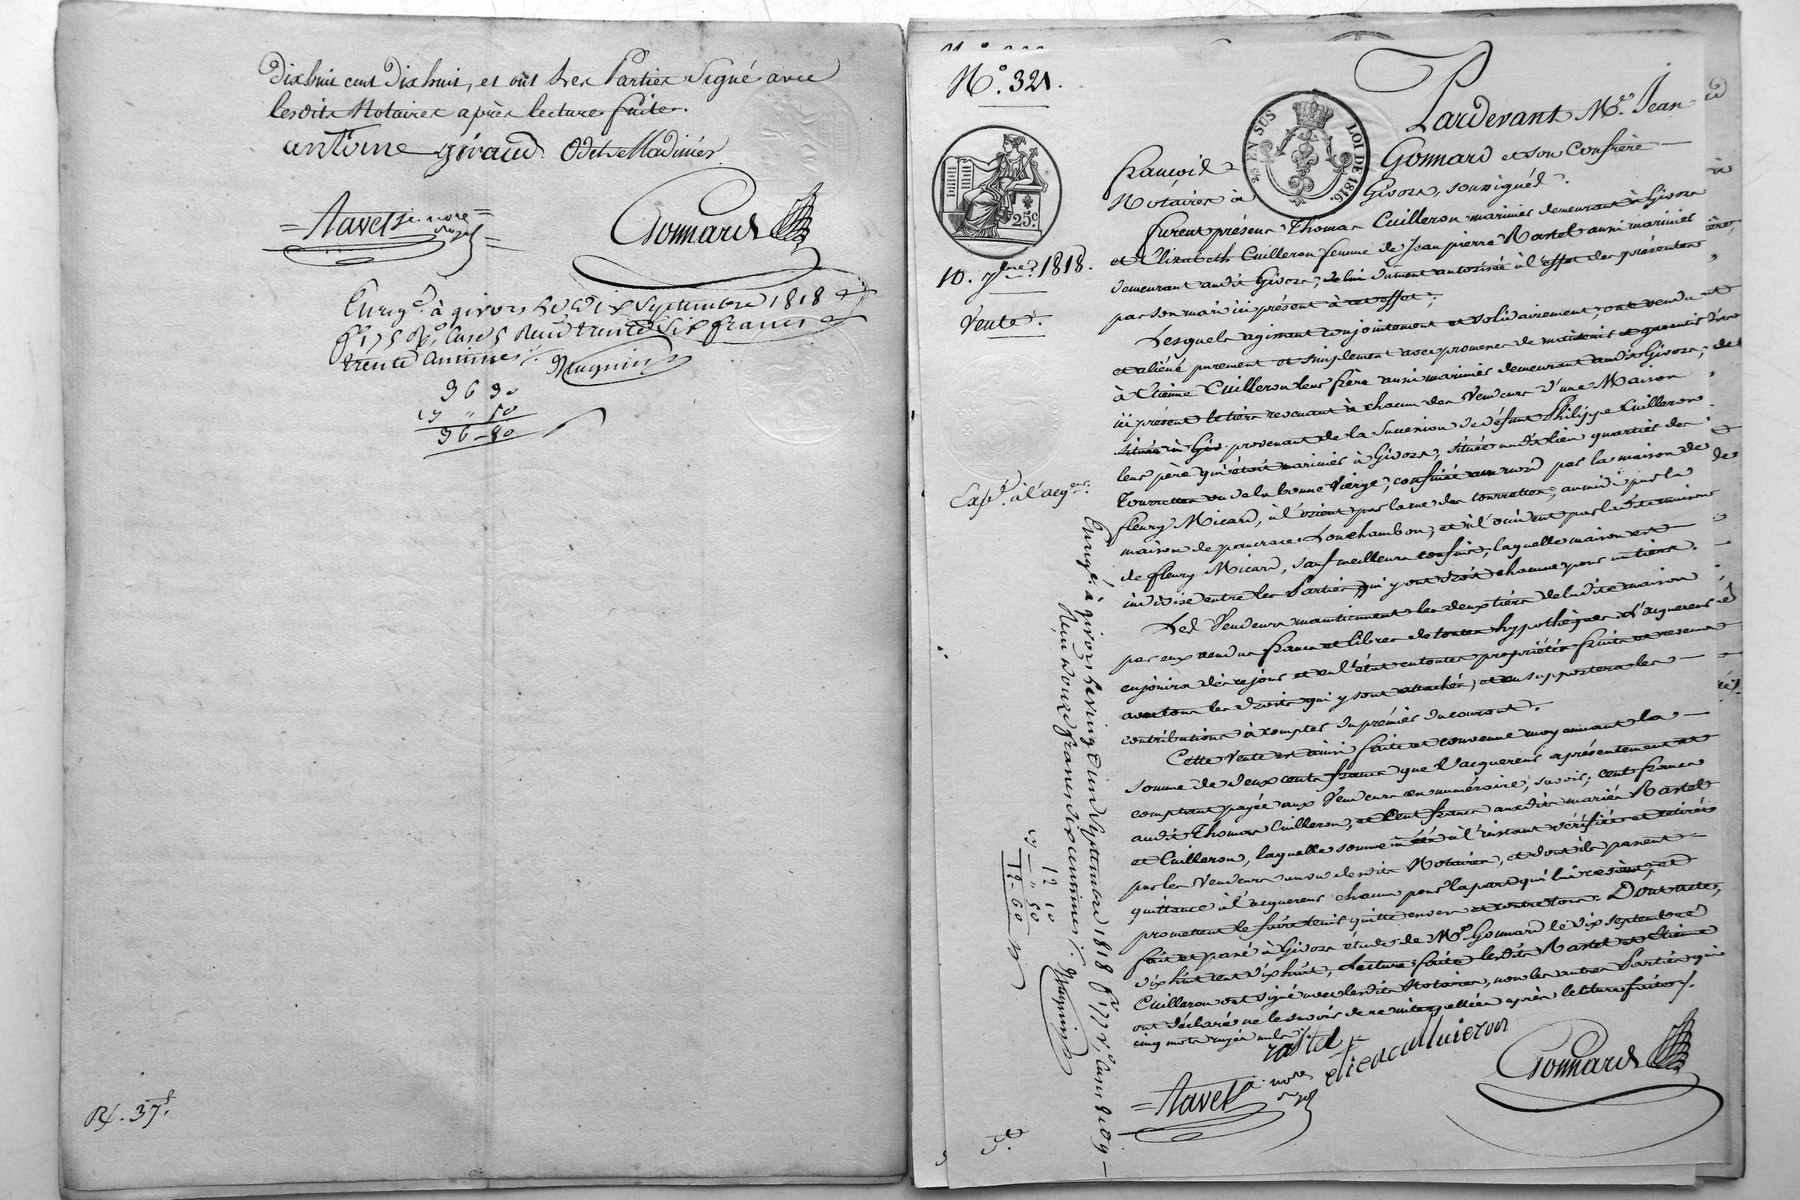 Dixhuit cent Dixhuit, et ont les Parties Signé avec
lesdits Notaires après lecture faite.
antoine giraud Odet Madinier
Navet
Gonnard
Enreg. à givors le Dix Septembre 1818
trente six francs
trente centimes
Mugnier
36 30
50
36-80
Rf. 37
N.° 321.
25 EN SUS
LOI DE 1816.
25c
10. 7bre 1818.
Vente.
Exp. à l'acq.
Pardevant Me. Jean
françois Gonnard et son Confrère
Notaires à Givors, soussignés.
furent présens Thomas Cuilleron marinier demeurant à Givors
et Elizabeth Cuilleron femme de Jean pierre Rastel aussi marinier
demeurant audit Givors, de lui dument autorisée à l'effet des présentes
par son mari ici présent à cet effet;
Lesquels agissant conjointement et solidairement, ont vendu
et aliéné purement et simplement avec promesse de maintenir et garantir
à Etienne Cuilleron leur frère aussi marinier demeurant audit Givors,
ici présent le tiers revenant à chacun des Vendeurs d'une Maison
située à provenant de la Succession de défunt Philippe Cuilleron
leur père qui étoit marinier à Givors, située audit lieu quartier des
Tourrettes ou de la bonne Vierge; confinée au nord par la maison de
fleury Micard, à l'orient par la rue des tourrettes, au midi par la
maison de pancrace Douchambon, et à l'occident par
de fleury Micard, sauf meilleurs confins, laquelle maison est
indivise entre les Parties qui y ont droit chacune pour un tiers.
Les Vendeurs maintiennent les deux tiers de ladite maison
par eux vendus francs et libres de toutes hypothèques. L'acquereur
en jouira dès ce jour et en l'état en toute propriété
avec tous les droits qui y sont attachés, et en supportera les
contributions à compter du prémier du courant.
Cette Vente est ainsi faite et convenue moyennant la
somme de deux cents francs que l'acquereur a présentement et
comptant payée aux Vendeurs en numéraire, savoir; cent francs
audit Thomas Cuilleron, et Cent francs auxdits mariés Rastel
et Cuilleron, laquelle somme à l'instant vérifiée et retirée
par les Vendeurs au vu desdits Notaires, et dont ils passent
quittance à l'acquereur chacun pour la part qui lui revient, et
promettent le faire tenir quitte envers et contre tous. Dont acte,
fait et passé à Givors étude de Me Gonnard le dix septembre
dixhuit cent dixhuit, lecture faite lesdits Rastel et Etienne
Cuilleron ont signé avec lesdits Notaires, non les autres Parties qui
ont déclaré ne le savoir de ce interpellées après lecture faite.
cinq mots rayés nuls.
rastel etienne cuilleron
Navet
Gonnard
Enregé à givors le vingt un Septembre 1818
Reçu douze francs dix centimes. Mugnier
12 10
50
12-60